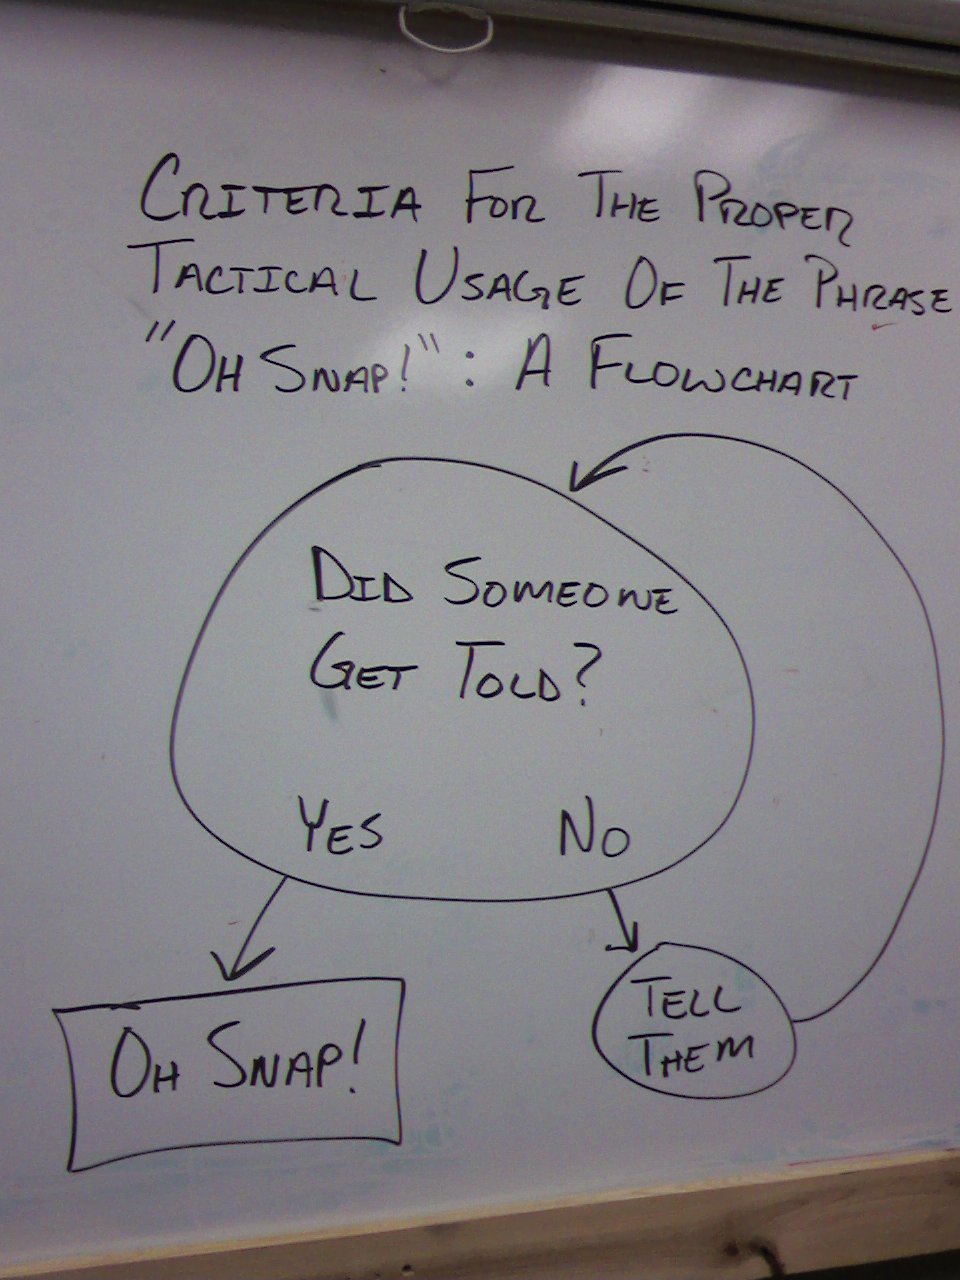 CRITERIA FOR THE PROPER
TACTICAL USAGE OF THE PHRASE
"OH SNAP!": A FLOWCHART
DID SOMEONE
GET TOLD?
YES NO
OH SNAP!
TELL
THEM